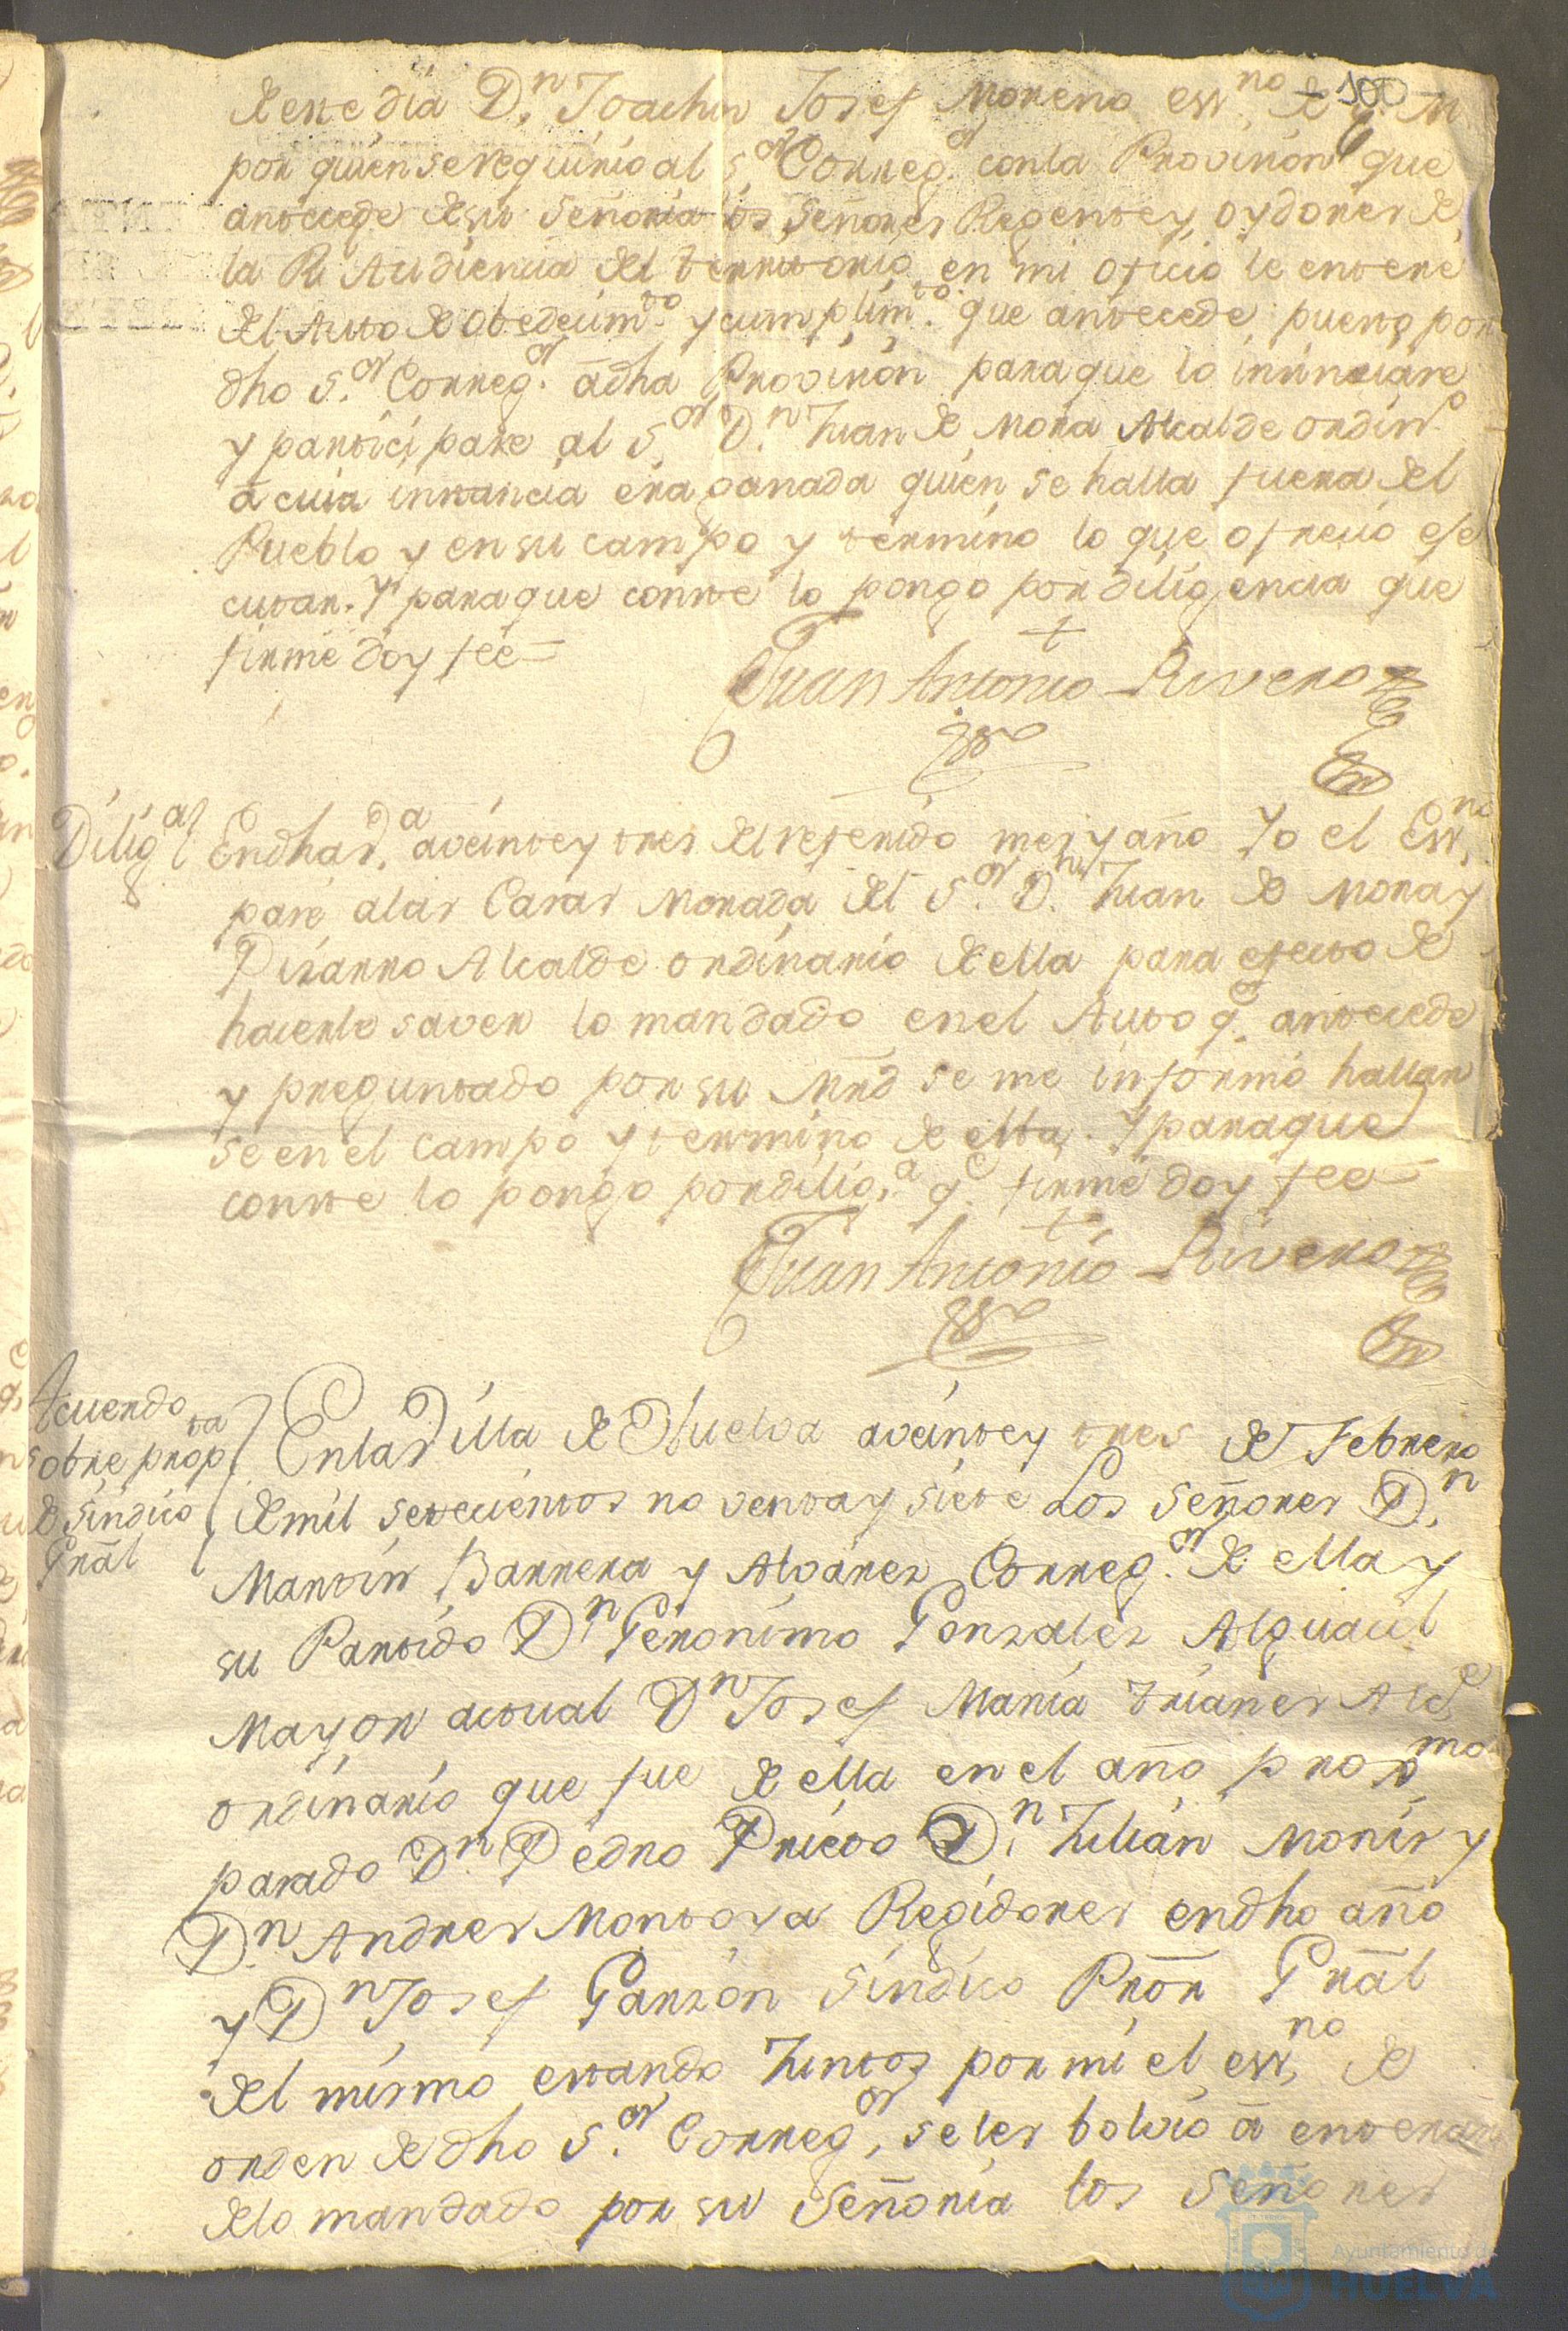 100
de este dia D.n Joachin Josef Moreno ess.no de S. M.
por quien se requirio al S.or Correg.or con la Provision que
antecede de su Señoria los Señores Regente y oydores de
la Rl Audiencia del territorio en mi oficio le entere
del Auto de Obedecim.to y cumplim.to que antecede puesto por
dho S.or Correg.or a dha Provision para que lo insinuare
y participare al S.or D.n Juan de Mora Alcalde ordin.o
a cuia instancia era ganada quien se halla fuera del
Pueblo y en su campo y termino lo que ofrecio ese
cutar. Y para que conste lo pongo por diligencia que
firmé doy fee=
Juan Antonio Rivero
Dilig.a En dha V.a a veinte y tres del referido mes y año Yo el Ess.no
pasé a las Casas Morada del S.or D.n Juan de Mora y
Pizarro Alcalde ordinario de ella para efecto de
hacerle saver lo mandado en el Auto q.e antecede
y preguntado por su Mrd se me informó hallar
se en el campo y termino de ella. Y para que
conste lo pongo por dilig.a q.e firmé doy fee=
Juan Antonio Rivero
Acuerdo
sobre prop.ta
de Sindico
Gral
En la Villa de Huelva a veinte y tres de Febrero
de mil setecientos noventa y siete Los Señores D.n
Martin Barrera y Alvarez Correg.or de ella y
su Partido D.n Geronimo Gonzalez Alguacil
Mayor actual D.n Josef Maria Trianes Alc.e
ordinario que fue de ella en el año prox.mo
pasado D.n Pedro Prieto D.n Julián Monis y
D.n Andres Montoya Regidores en dho año
y D.n Josef Garzón Sindico Pror Gral
del mismo estando Juntos por mi el ess.no de
orden de dho S.or Correg.or se les bolvio a enterar
de lo mandado por su Señoria los Señores
Ayuntamiento de
HUELVA